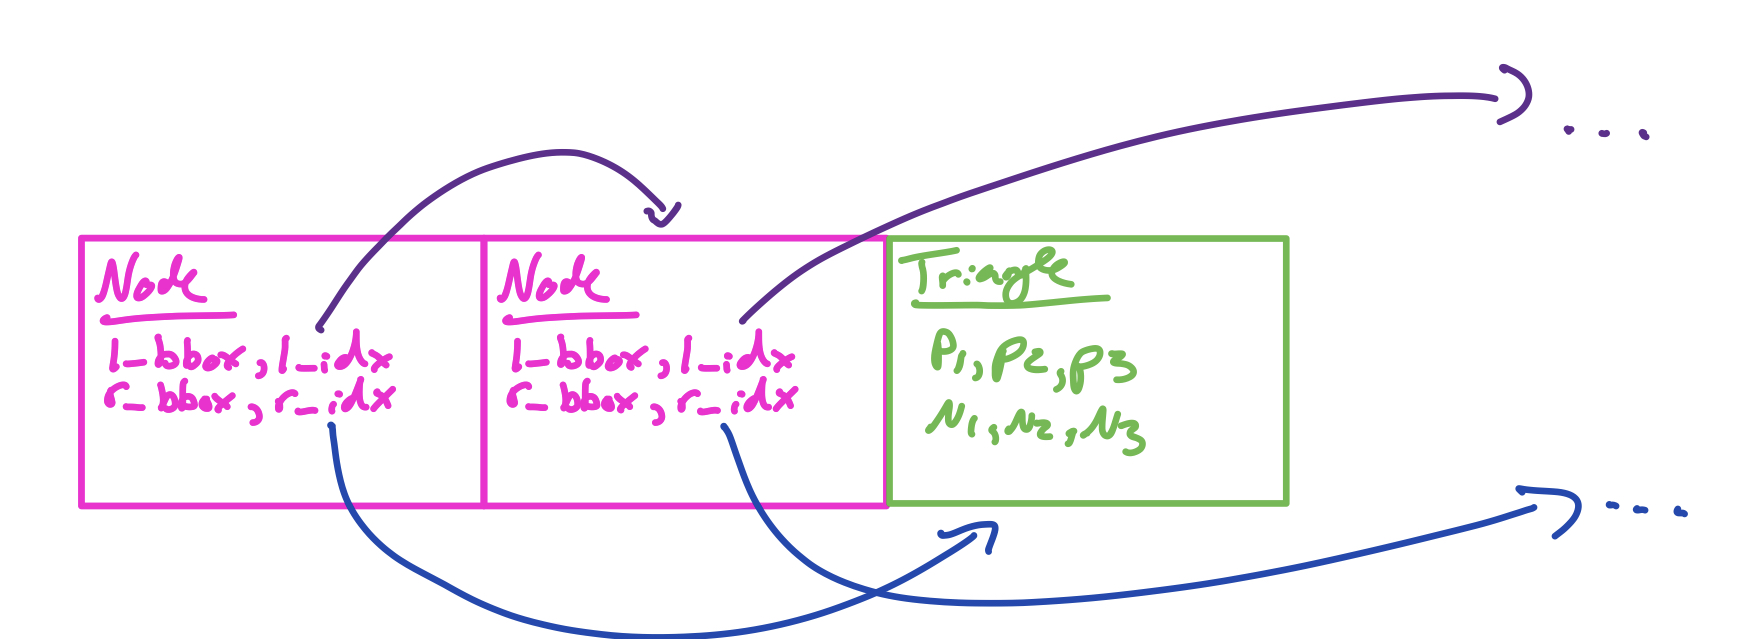 Node
l_bbox, l_idx
r_bbox, r_idx
Node
l_bbox, l_idx
r_bbox, r_idx
Triangle
P1, P2, P3
N1, N2, N3